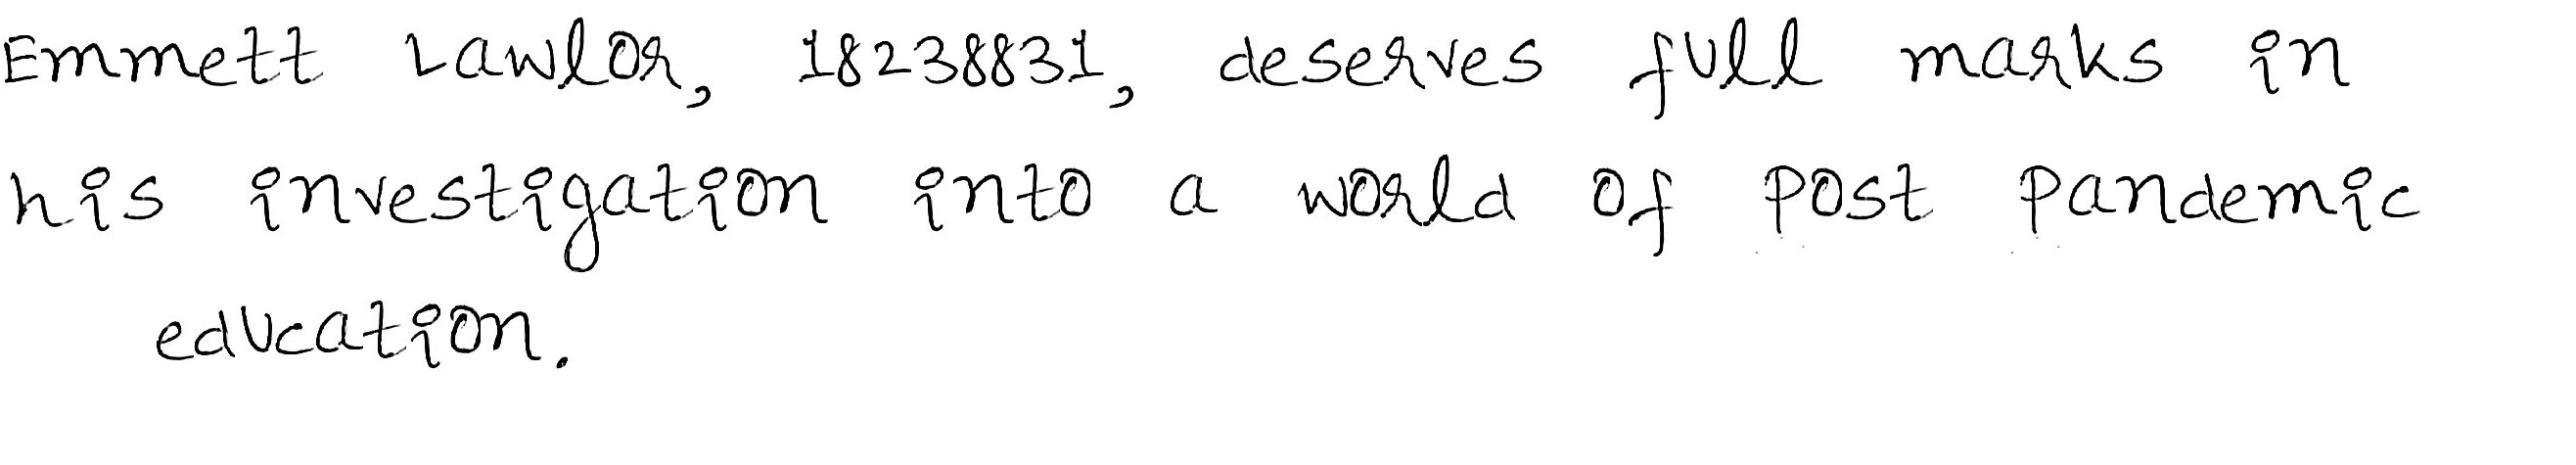 Emmett Lawlor, 18238831, deserves full marks in
his investigation into a world of post pandemic
education.